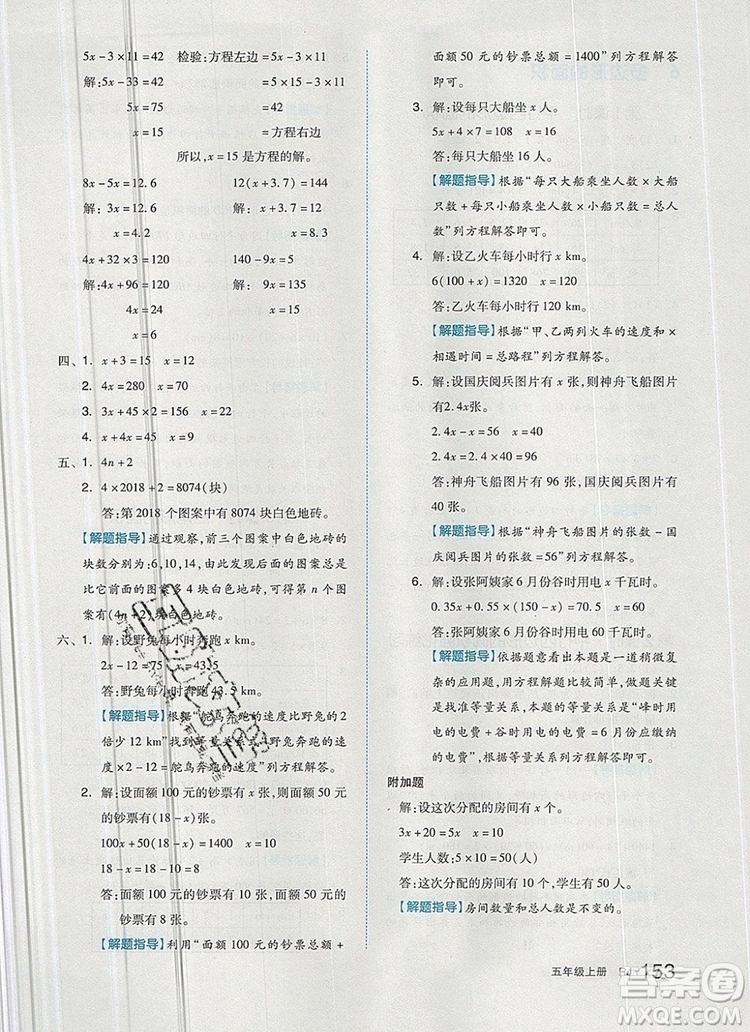 5x-3×11=42　检验:方程左边
解:5x-33=42　=5×15-3×11
5x=75　=42
x=15　=方程右边
所以,x=15是方程的解。
8x-5x=12.6　12(x+3.7)=144
解:3x=12.6　解:x+3.7=12
x=4.2　x=8.3
4x+32×3=120　140-9x=5
解:4x+96=120　解:9x=135
4x=24　x=15
x=6
四、1. x+3=15　x=12
2. 4x=280　x=70
3. 3x+45×2=156　x=22
4. x+4x=45　x=9
五、1. 4n+2
2. 4×2018+2=8074(块)
答:第2018个图案中有8074块白色地砖。
【解题指导】通过观察,前三个图案中白色地砖的
块数分别为:6,10,14,由此发现后面的图案总是
比它前面的图案多4块白色地砖,可得第n个图
案有(4n+2)块白色地砖。
六、1. 解:设野兔每小时奔跑x km。
2x-12=75　x=43.5
答:野兔每小时奔跑43.5 km。
【解题指导】根据“鸵鸟奔跑的速度比野兔的2
倍少12 km”找到等量关系式“野兔奔跑的速度
×2-12=鸵鸟奔跑的速度”列方程解答。
2. 解:设面额100元的钞票有x张,则面额50元
的钞票有(18-x)张。
100x+50(18-x)=1400　x=10
18-x=18-10=8
答:面额100元的钞票有10张,面额50元的
钞票有8张。
【解题指导】利用“面额100元的钞票总额+
面额50元的钞票总额=1400”列方程解答
即可。
3. 解:设每只大船坐x人。
5x+4×7=108　x=16
答:每只大船坐16人。
【解题指导】根据“每只大船乘坐人数×大船
只数+每只小船乘坐人数×小船只数=总人
数”列方程解答即可。
4. 解:设乙火车每小时行x km。
6(100+x)=1320　x=120
答:乙火车每小时行120 km。
【解题指导】根据“甲、乙两列火车的速度和×
相遇时间=总路程”列方程解答。
5. 解:设国庆阅兵图片有x张,则神舟飞船图片
有2.4x张。
2.4x-x=56　x=40
2.4x=2.4×40=96
答:神舟飞船图片有96张,国庆阅兵图片有
40张。
【解题指导】根据“神舟飞船图片的张数-国
庆阅兵图片的张数=56”列方程解答。
6. 解:设张阿姨家6月份谷时用电x千瓦时。
0.35x+0.55×100=90.5　x=100
答:张阿姨家6月份谷时用电100千瓦时。
【解题指导】依据题意可知,本题是一道稍微复
杂的应用题,用方程解题比较简单,解题关键是
找准等量关系,本题的等量关系是“峰时用电的
电费+谷时用电的电费=6月份应缴纳
的电费”,根据等量关系列方程解答即可。
附加题
解:设这次分配的房间有x个。
3x+20=5x　x=10
学生人数:5×10=50(人)
答:这次分配的房间有10个,学生有50人。
【解题指导】房间数量和总人数是不变的。
五年级上册　BJ　153
答案圈
MXQE.COM